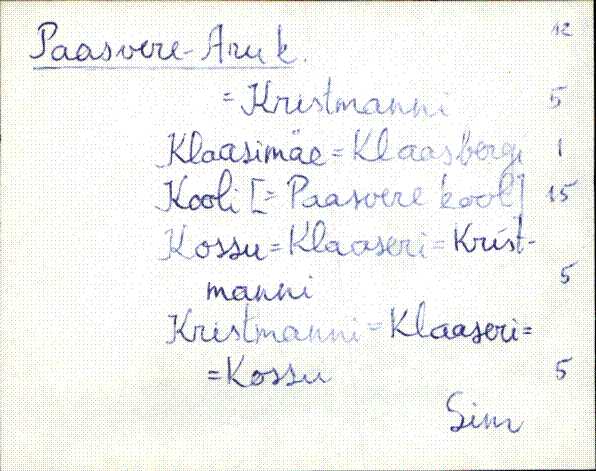 12
Paasvere-Aru k.
= Kristmanni 5
Klaasimäe = Klaasbergi 1
Kooli [= Paasvere kool] 15
Kossu = Klaaseri = Krist-
manni 5
Kristmanni = Klaaseri =
= Kossu 5
Sim